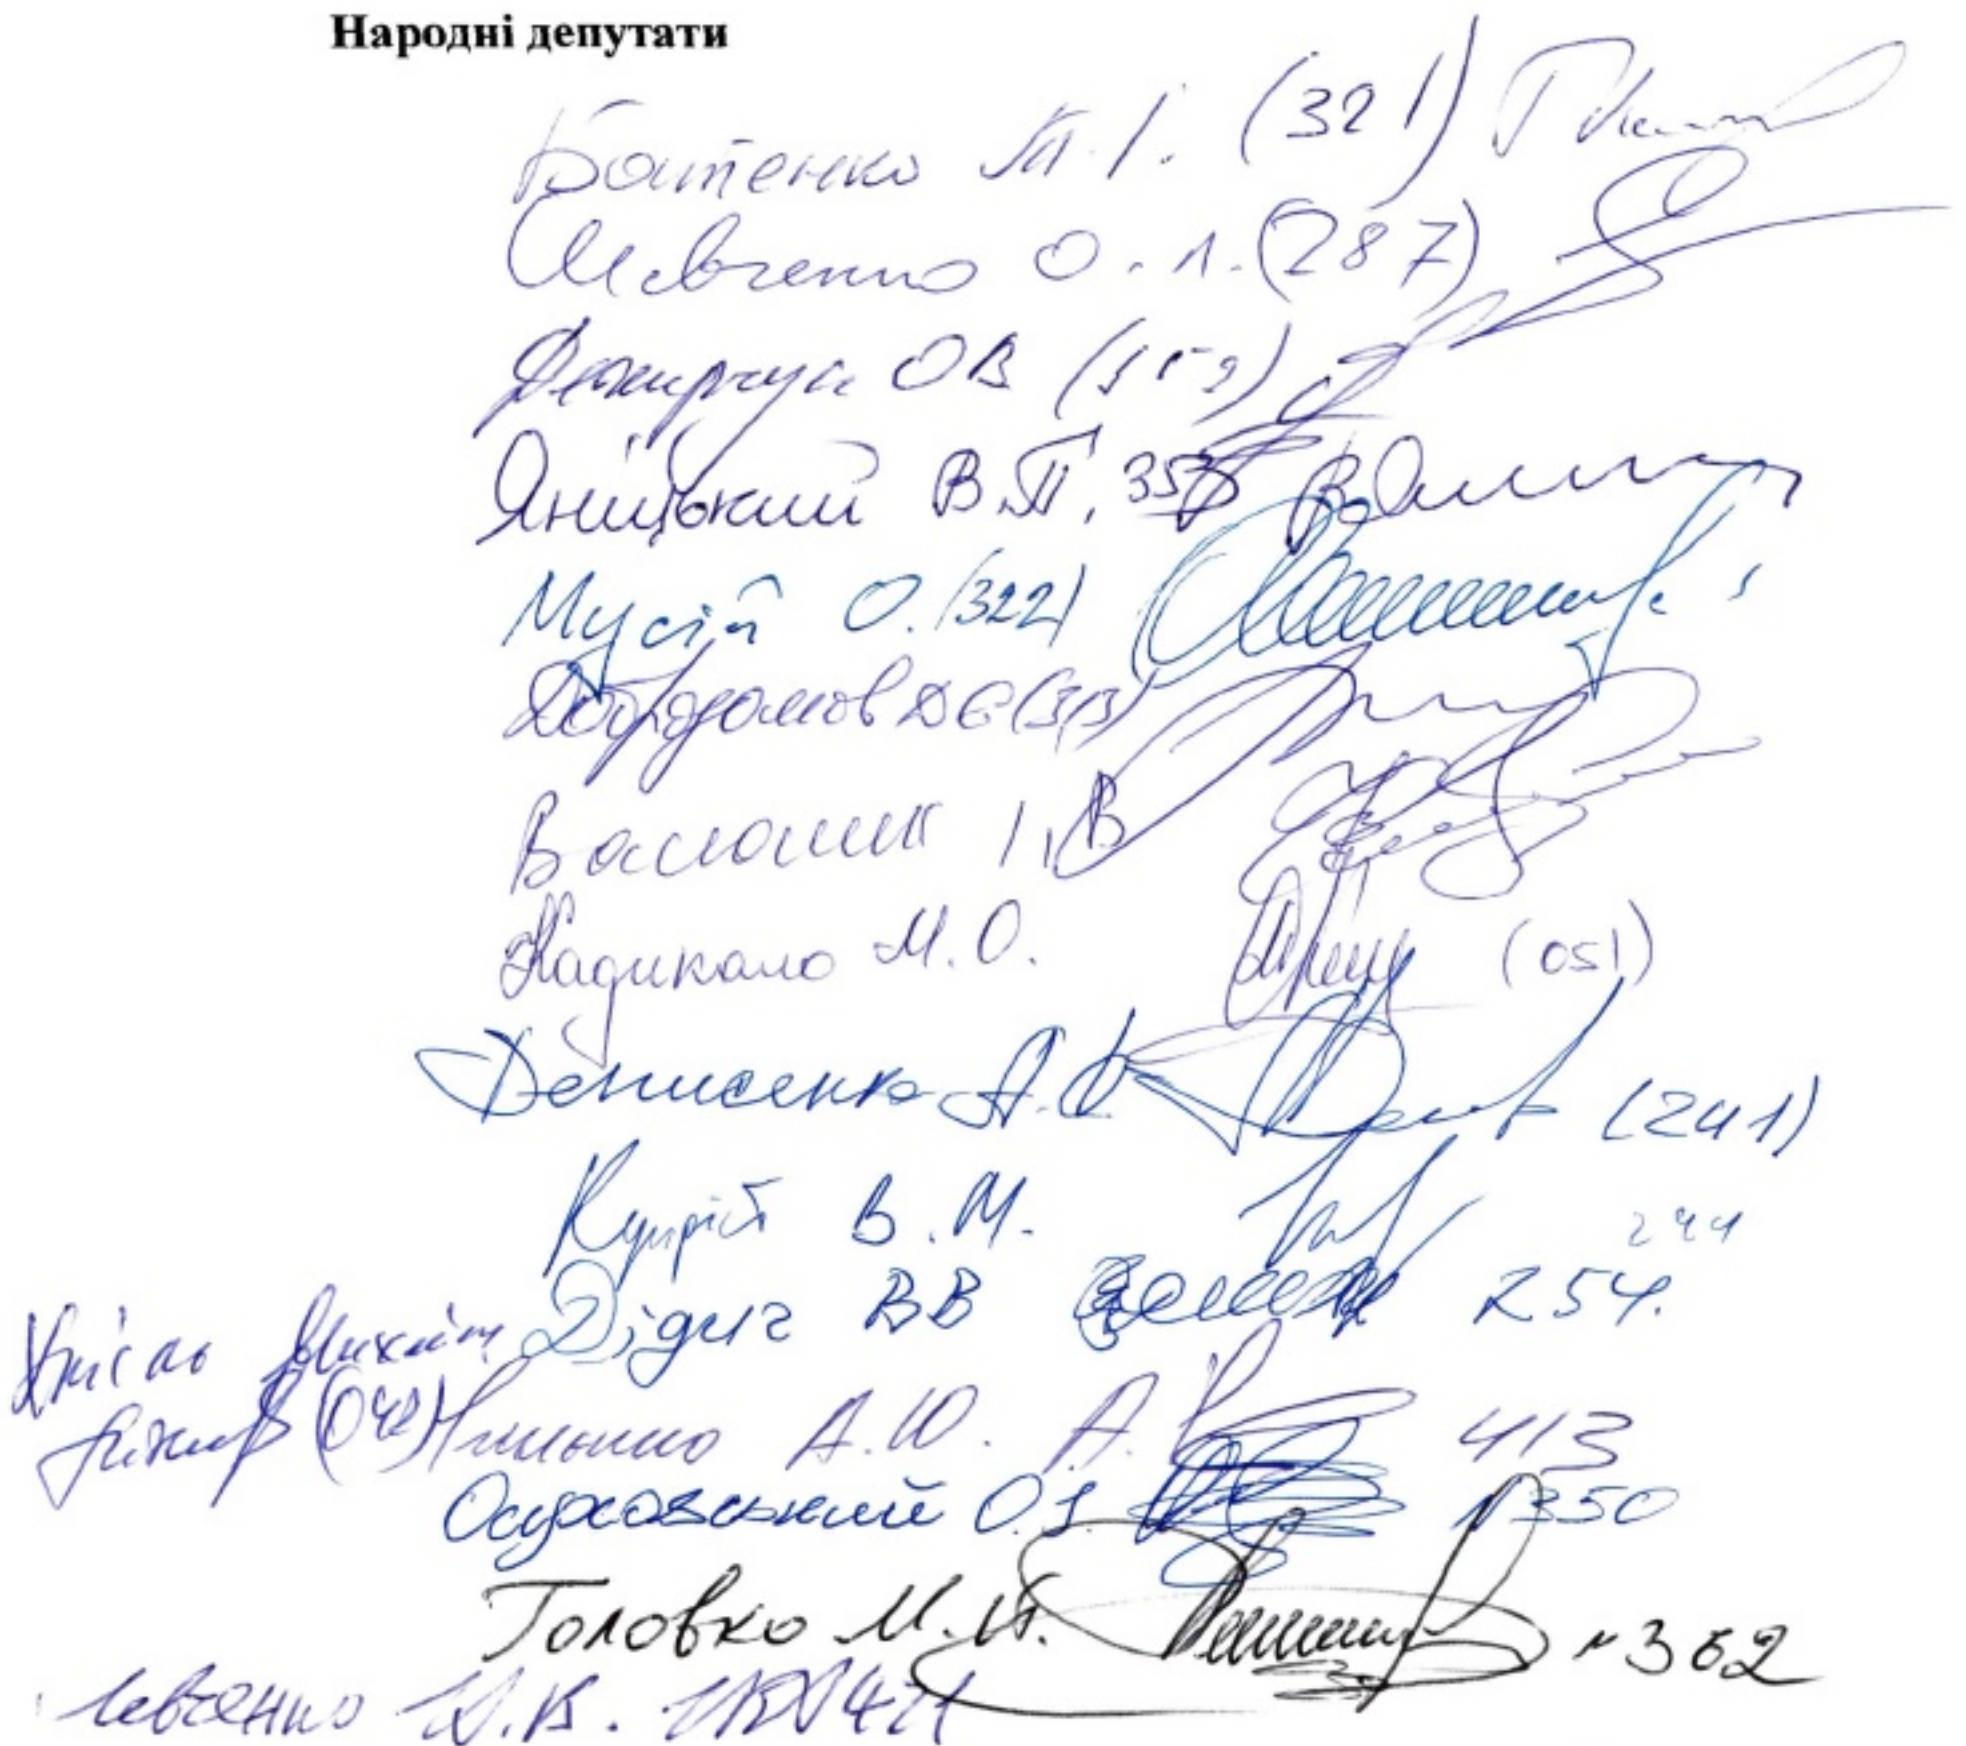 Народні депутати
Батенко Т.І. (321)
Шевченко О.Л. (287)
Дехтярчук О В (359)
Яніцький В.П. 358
Мусій О. (322)
Добродомов Д Є (313)
Васюник І.В
Кадикало М.О. (051)
Денисенко А. (241)
Купрій В.М. 244
Дідич ВВ 254.
Хміль Михайло (042)
Іллєнко А.Ю. 413
Осуховський О.І. №350
Головко М.Й. №362
Левченко Ю.В.